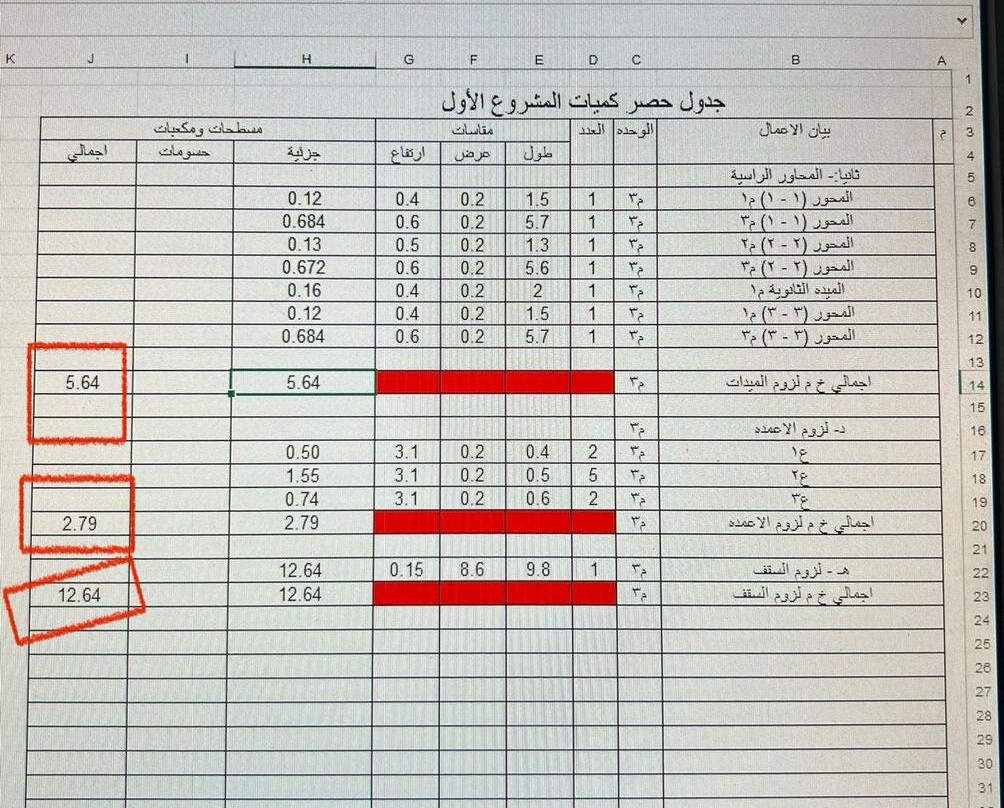 K J I H G F E D C B A
1
جدول حصر كميات المشروع الأول 2
م بيان الاعمال الوحده العدد مقاسات مسطحات ومكعبات 3
طول عرض ارتفاع جزئية حسومات اجمالي 4
ثانيا:- المحاور الراسية 5
المحور (١ - ١) م١ م٣ 1 1.5 0.2 0.4 0.12 6
المحور (١ - ١) م٣ م٣ 1 5.7 0.2 0.6 0.684 7
المحور (٢ - ٢) م٢ م٣ 1 1.3 0.2 0.5 0.13 8
المحور (٢ - ٢) م٣ م٣ 1 5.6 0.2 0.6 0.672 9
الميده الثانوية م١ م٣ 1 2 0.2 0.4 0.16 10
المحور (٣ - ٣) م١ م٣ 1 1.5 0.2 0.4 0.12 11
المحور (٣ - ٣) م٣ م٣ 1 5.7 0.2 0.6 0.684 12
13
اجمالي خ م لزوم الميدات م٣ 5.64 5.64 14
15
د- لزوم الاعمده م٣ 16
ع١ م٣ 2 0.4 0.2 3.1 0.50 17
ع٢ م٣ 5 0.5 0.2 3.1 1.55 18
ع٣ م٣ 2 0.6 0.2 3.1 0.74 19
اجمالي خ م لزوم الاعمده م٣ 2.79 2.79 20
21
هـ - لزوم السقف م٣ 1 9.8 8.6 0.15 12.64 22
اجمالي خ م لزوم السقف م٣ 12.64 12.64 23
24
25
26
27
28
29
30
31